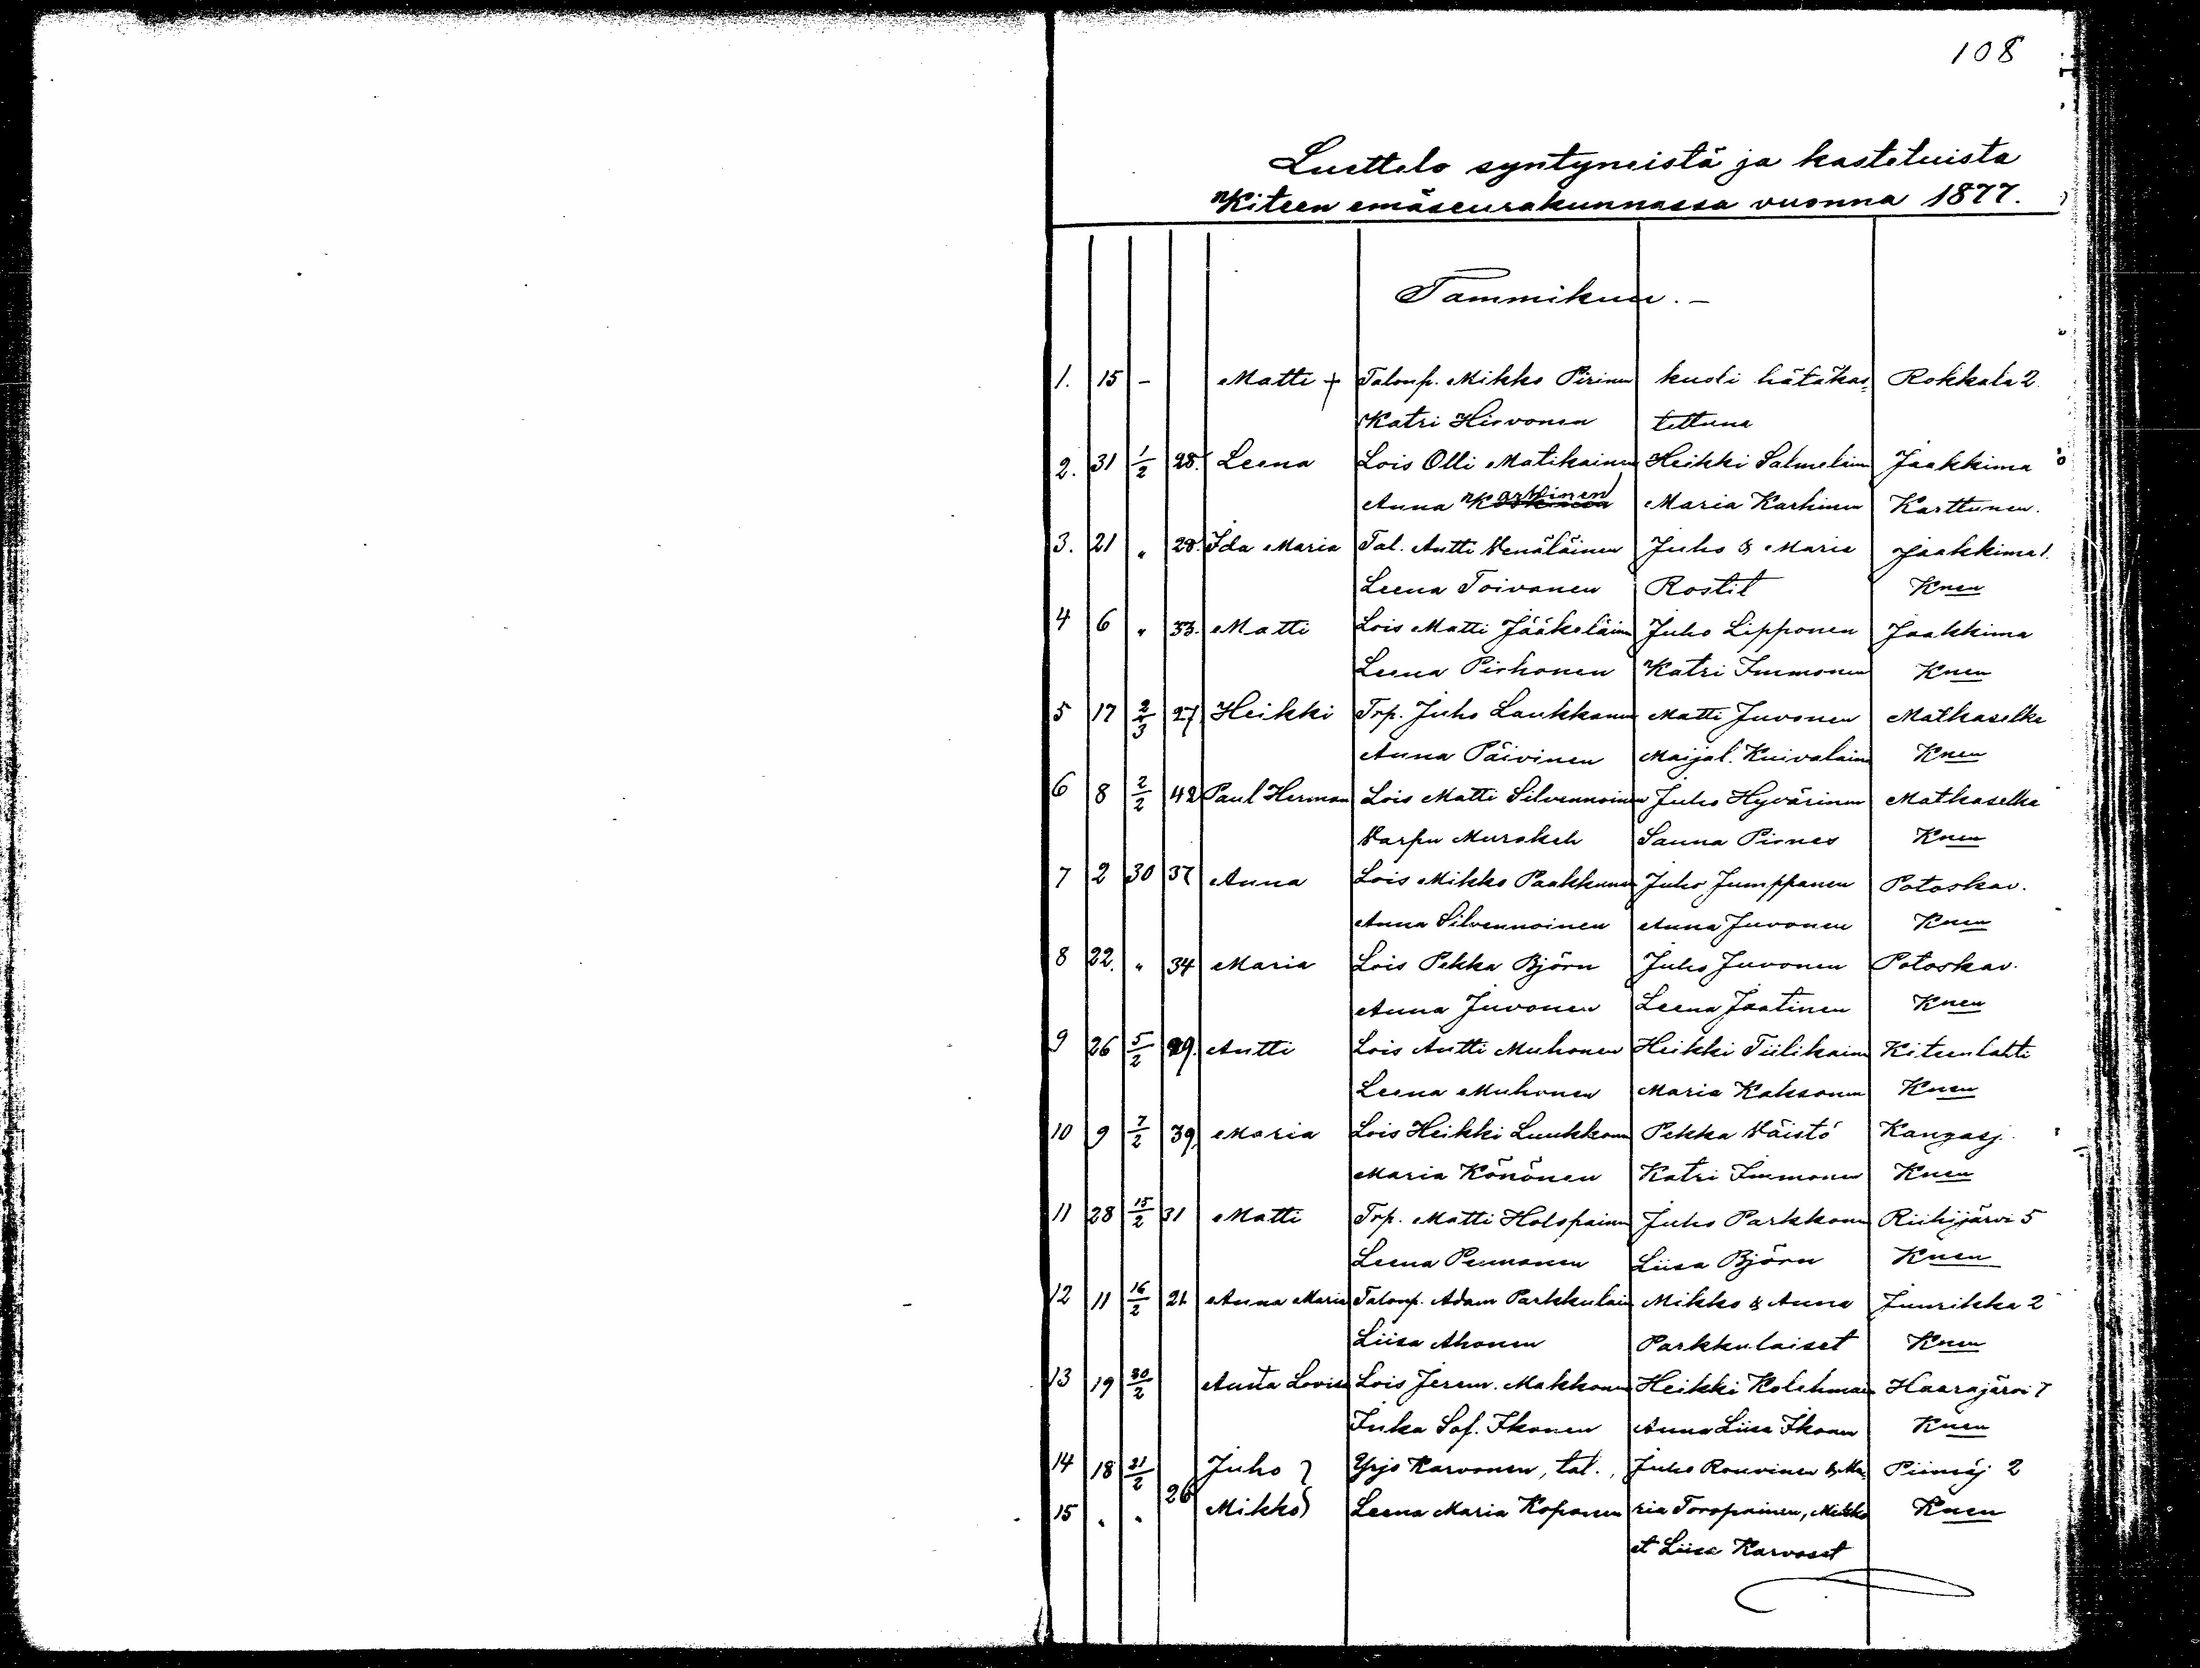 108
Luettelo syntyneistä ja kastetuista
Kiteen emäseurakunnassa vuonna 1877.
Tammikuu. –
1. 15 – Matti + Talonp. Mikko Pirinen kuoli hätäkas- Rokkala 2.
Katri Hirvonen tettuna
2. 31 1/2 28. Leena Lois Olli Matikainen Heikki Salmelainen Jaakkima
Anna Karhinen Maria Karhinen Karttunen.
3. 21 " 28. Ida Maria Tal. Antti Venäläinen Juho & Maria Jaakkima 1.
Leena Toivanen Rostit Knen
4 6 " 33. Matti Lois Matti Jääkeläinen Juho Lipponen Jaakkima
Leena Pirhonen Katri Immonen Knen
5 17 2/3 27 Heikki Trp. Juho Laukkanen Matti Juvonen Matkaselkä
Anna Päivinen Maijal. Kuivalainen Knen
6 8 2/2 42 Paul Herman Lois Matti Silvennoinen Juho Hyvärinen Matkaselkä
Varpu Murakeh Sanna Pirnes Knen
7 2 30 37 Anna Lois Mikko Paakkunen Juho Jumppanen Potoskav.
Anna Silvennoinen Anna Juvonen Knen
8 22. " 34 Maria Lois Pekka Björn Juho Juvonen Potoskav.
Anna Juvonen Leena Jaatinen Knen
9 26 5/2 29. Antti Lois Antti Muhonen Heikki Tiilikainen Kiteenlahti
Leena Muhonen Maria Kaksonen Knen
10 9 7/2 39, Maria Lois Heikki Luukkonen Pekka Väistö Kangasj.
Maria Könönen Katri Immonen Knen
11 28 15/2 31 Matti Trp. Matti Holopainen Juho Parkkonen Riihijärvi 5
Leena Pennanen Liisa Björn Knen
12 11 16/2 21 Anna Maria Talonp. Adam Parkkulain Mikko & Anna Juurikka 2
Liisa Ahonen Parkkulaiset Knen
13 19 20/2 Anna Lovisa Lois Jerem. Makkonen Heikki Kolehmain Haarajärvi 7
Inka Sof. Ikonen Anna Liisa Ikonen Knen
14 18 21/2 Juho } Yrjö Karvonen, tal., Juho Rouvinen & Ma- Piimäj 2
15 " " 26 Mikko } Leena Maria Koponen ria Toropainen, Mikko Knen
et Liisa Karvoset